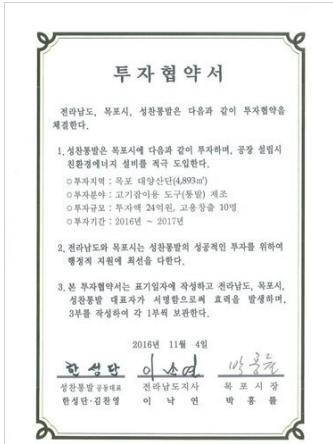 투자협약서
전라남도, 목포시, 성찬통발은 다음과 같이 투자협약을
체결한다.
1. 성찬통발은 목포시에 다음과 같이 투자하며, 공장 설립시
친환경에너지 설비를 적극 도입한다.
○투자지역 : 목포 대양산단(4,893㎡)
○투자분야 : 고기잡이용 도구(통발) 제조
○투자규모 : 투자액 24억원, 고용창출 10명
○투자기간 : 2016년 ~ 2017년
2. 전라남도와 목포시는 성찬통발의 성공적인 투자를 위하여
행정적 지원에 최선을 다한다.
3. 본 투자협약서는 표기일자에 작성하고 전라남도, 목포시,
성찬통발 대표자가 서명함으로써 효력을 발생하며,
3부를 작성하여 각 1부씩 보관한다.
2016년 11월 4일
한성단
성찬통발 공동대표 전라남도지사 목포시장
한성단·김찬영 이낙연 박홍률